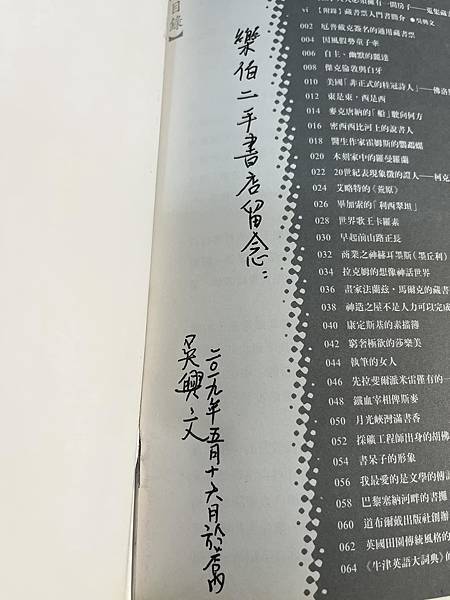 目錄】
樂伯二手書店留念：
吳興文
二〇一九年五月十六日於
vi 【附錄】藏書票入門書簡介 ●吳興文
002 厄普戴克簽名的通用藏書票
004 因風假勢童子牽
006 自主、幽默的
008 傑克倫敦與白牙
010 美國「非正式的桂冠詩人」——佛洛
012 東是東，西是西
014 麥克唐納的「船」駛向何方
016 密西西比河上的說書人
018 醫生作家霍姆斯的鸚鵡螺
020 木刻家中的羅曼羅蘭
022 20世紀表現象徵的證人——柯克
024 艾略特的《荒原》
026 畢加索的「利西翠坦」
028 世界歌王卡羅素
030 早起前山路正長
032 商業之神赫耳墨斯（墨丘利）
034 拉克姆的想像神話世界
036 畫家法蘭茲．馬爾克的藏書
038 神造之屋不是人力可以完成
040 康定斯基的素描簿
042 窮奢極慾的莎樂美
044 執筆的女人
046 先拉斐爾派米雷僅有的一
048 鐵血宰相俾斯麥
050 月光峽灣滿書香
052 採礦工程師出身的胡佛
054 書呆子的形象
056 我最愛的是文學的傳
058 巴黎塞納河畔的書攤
060 道布爾戴出版社創辦
062 英國田園傳統風格的
064 《牛津英語大詞典》的